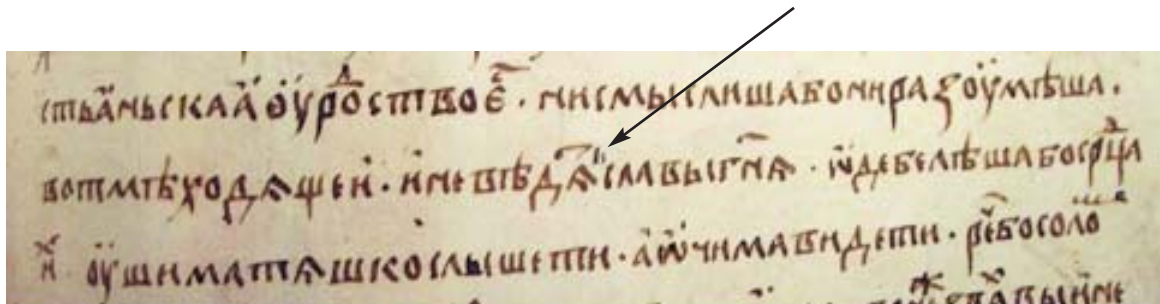 стьаньскаа оурⷣоство є҃ · ни смыслиша бо ни раꙁоумѣша ·
во тмѣ ходѧщеи · и не вѣдѧ҃ славы гн҃ѧ · ѡдебелѣша бо срⷣца
иⷯ оушима тѧшко слышети · а ѡчима видети · рⷱе бо соло